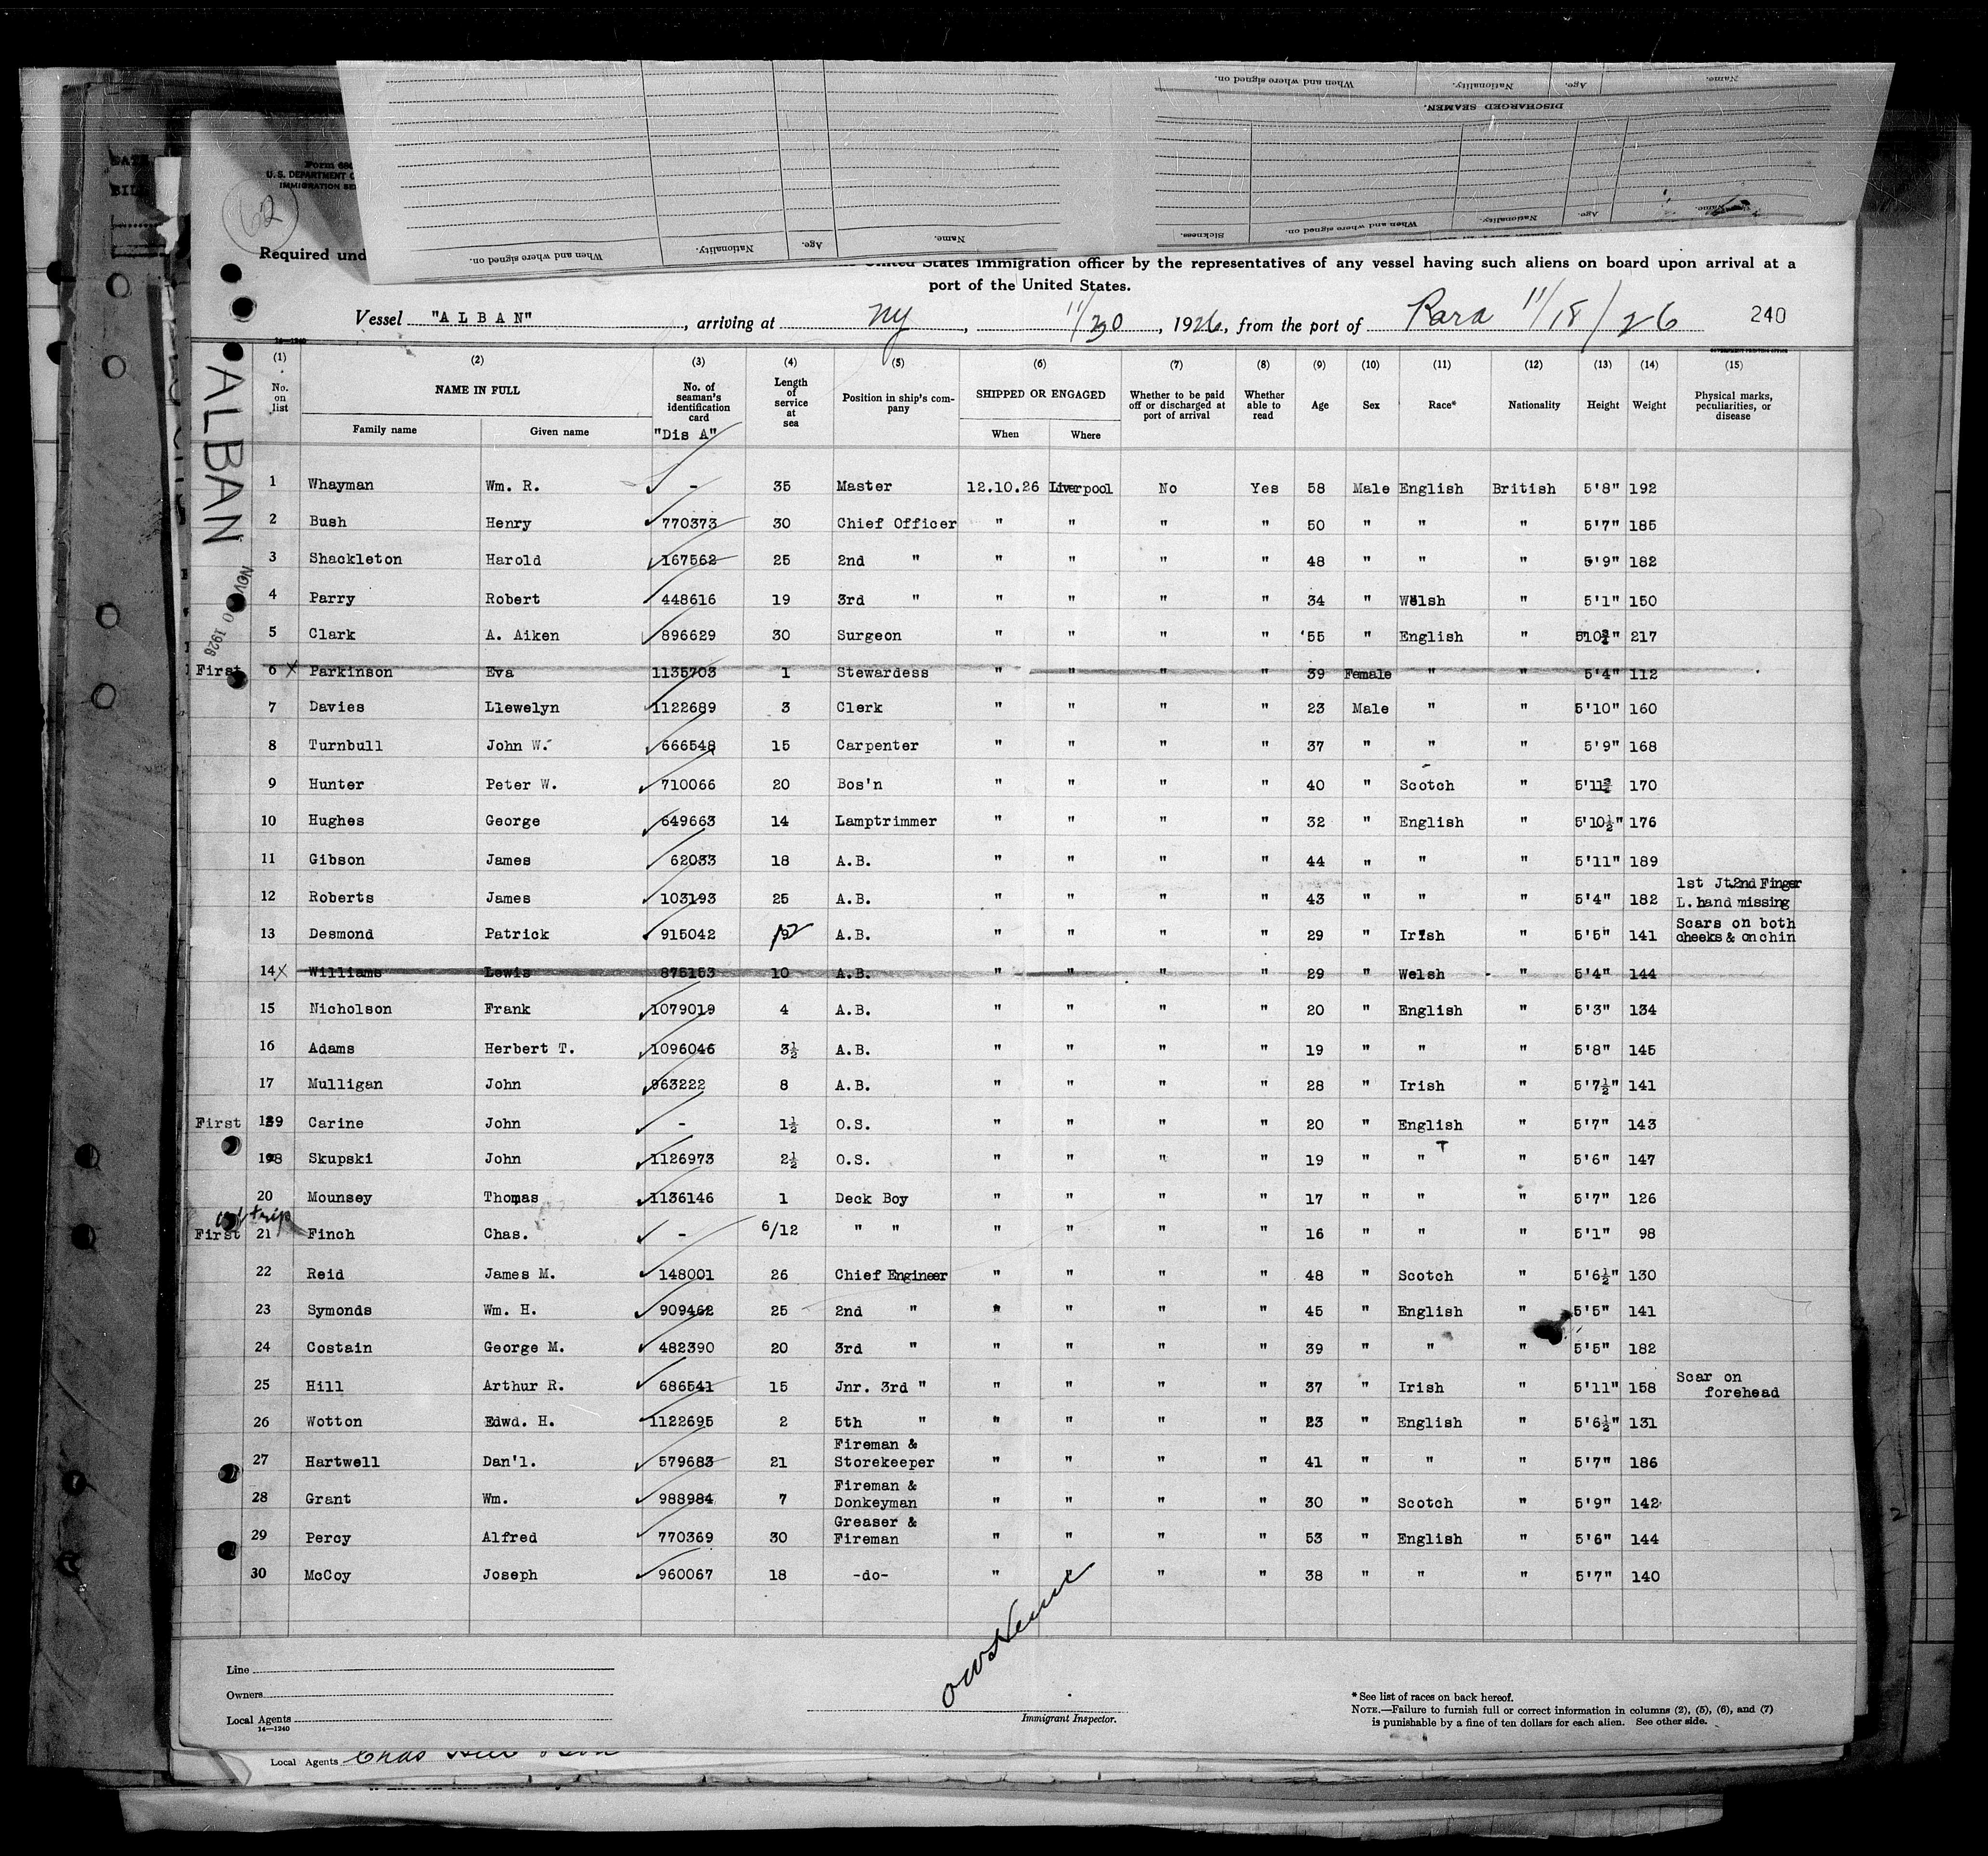 When and where signed on. Nationality. Age. Name.
DISCHARGED SEAMEN.
Name. Age. Nationality. When and where signed on. Sickness.
Name. Age. Nationality. When and where signed on.
Form 680
U. S. DEPARTMENT O
IMMIGRATION SE
62
Required und United States immigration officer by the representatives of any vessel having such aliens on board upon arrival at a
port of the United States.
Vessel "ALBAN", arriving at NY, 11/30, 1926, from the port of Para 11/18/26 240
14—1240 GOVERNMENT PRINTING OFFICE
ALBAN
NOV 30 1926
(1) (2) (3) (4) (5) (6) (7) (8) (9) (10) (11) (12) (13) (14) (15)
No. on list NAME IN FULL No. of seaman's identification card Length of service at sea Position in ship's company SHIPPED OR ENGAGED Whether to be paid off or discharged at port of arrival Whether able to read Age Sex Race* Nationality Height Weight Physical marks, peculiarities, or disease
Family name Given name "Dis A" When Where
1 Whayman Wm. R. - 35 Master 12.10.26 Liverpool No Yes 58 Male English British 5'8" 192
2 Bush Henry 770373 30 Chief Officer " " " " 50 " " " 5'7" 185
3 Shackleton Harold 167562 25 2nd " " " " " 48 " " " 5'9" 182
4 Parry Robert 448616 19 3rd " " " " " 34 " Welsh " 5'1" 150
5 Clark A. Aiken 896629 30 Surgeon " " " " 55 " English " 5'10¾" 217
First 6 x Parkinson Eva 1135703 1 Stewardess " " " " 39 Female " " 5'4" 112
7 Davies Llewelyn 1122689 3 Clerk " " " " 23 Male " " 5'10" 160
8 Turnbull John W. 666548 15 Carpenter " " " " 37 " " " 5'9" 168
9 Hunter Peter W. 710066 20 Bos'n " " " " 40 " Scotch " 5'11¾ 170
10 Hughes George 649663 14 Lamptrimmer " " " " 32 " English " 5'10½" 176
11 Gibson James 62033 18 A.B. " " " " 44 " " " 5'11" 189
12 Roberts James 103193 25 A.B. " " " " 43 " " " 5'4" 182 1st Jt2nd Finger L. hand missing
13 Desmond Patrick 915042 12 A.B. " " " " 29 " Irish " 5'5" 141 Scars on both cheeks & on chin
14 x Williams Lewis 875153 10 A.B. " " " " 29 " Welsh " 5'4" 144
15 Nicholson Frank 1079019 4 A.B. " " " " 20 " English " 5'3" 134
16 Adams Herbert T. 1096046 3½ A.B. " " " " 19 " " " 5'8" 145
17 Mulligan John 963222 8 A.B. " " " " 28 " Irish " 5'7½" 141
First 19 Carine John - 1½ O.S. " " " " 20 " English " 5'7" 143
18 Skupski John 1126973 2½ O.S. " " " " 19 " " " 5'6" 147
20 Mounsey Thomas 1136146 1 Deck Boy " " " " 17 " " " 5'7" 126
1st trip
First 21 Finch Chas. - 6/12 " " " " " " 16 " " " 5'1" 98
22 Reid James M. 148001 26 Chief Engineer " " " " 48 " Scotch " 5'6½" 130
23 Symonds Wm. H. 909462 25 2nd " " " " " 45 " English " 5'5" 141
24 Costain George M. 482390 20 3rd " " " " " 39 " " " 5'5" 182
25 Hill Arthur R. 686541 15 Jnr. 3rd " " " " " 37 " Irish " 5'11" 158 Scar on forehead
26 Wotton Edwd. H. 1122695 2 5th " " " " " 23 " English " 5'6½" 131
27 Hartwell Dan'l. 579683 21 Fireman & Storekeeper " " " " 41 " " " 5'7" 186
28 Grant Wm. 988984 7 Fireman & Donkeyman " " " " 30 " Scotch " 5'9" 142
29 Percy Alfred 770369 30 Greaser & Fireman " " " " 53 " English " 5'6" 144
30 McCoy Joseph 960067 18 -do- " " " " 38 " " " 5'7" 140
Line
Owners
Local Agents
14—1240
Immigrant Inspector.
* See list of races on back hereof.
NOTE.—Failure to furnish full or correct information in columns (2), (5), (6), and (7)
is punishable by a fine of ten dollars for each alien. See other side.
Local Agents Chas